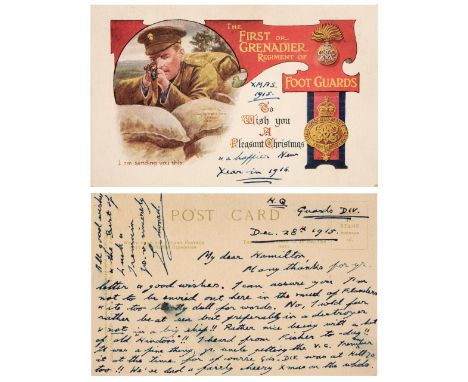 THE
FIRST OR
GRENADIER
REGIMENT OF
FOOT GUARDS
XMAS.
1915.
To
Wish you
A
Pleasant Christmas
& a happier New
Year in 1916.
I am sending you this
POST CARD
STAMP
All good wishes
& the Best of
Luck
yrs. v. sincerely
H.Q.
Guards Div.
Dec. 28th 1915.
My dear Hamilton
Many thanks for yr.
letter & good wishes. I can assure you I'm
not to be envied out here in the mud of Flanders
& its too dull for words. No, I wld far
rather be at sea but preferably in a destroyer
& not in a big ship!! Rather nice being with a lot
of old Hindoos!! I heard from Fisher to-day!!
It was a fine thing, yr uncle getting the V.C.
it at the time for of course Gds. Div. was at
too!! We've had a fairly cheery Xmas on the whole